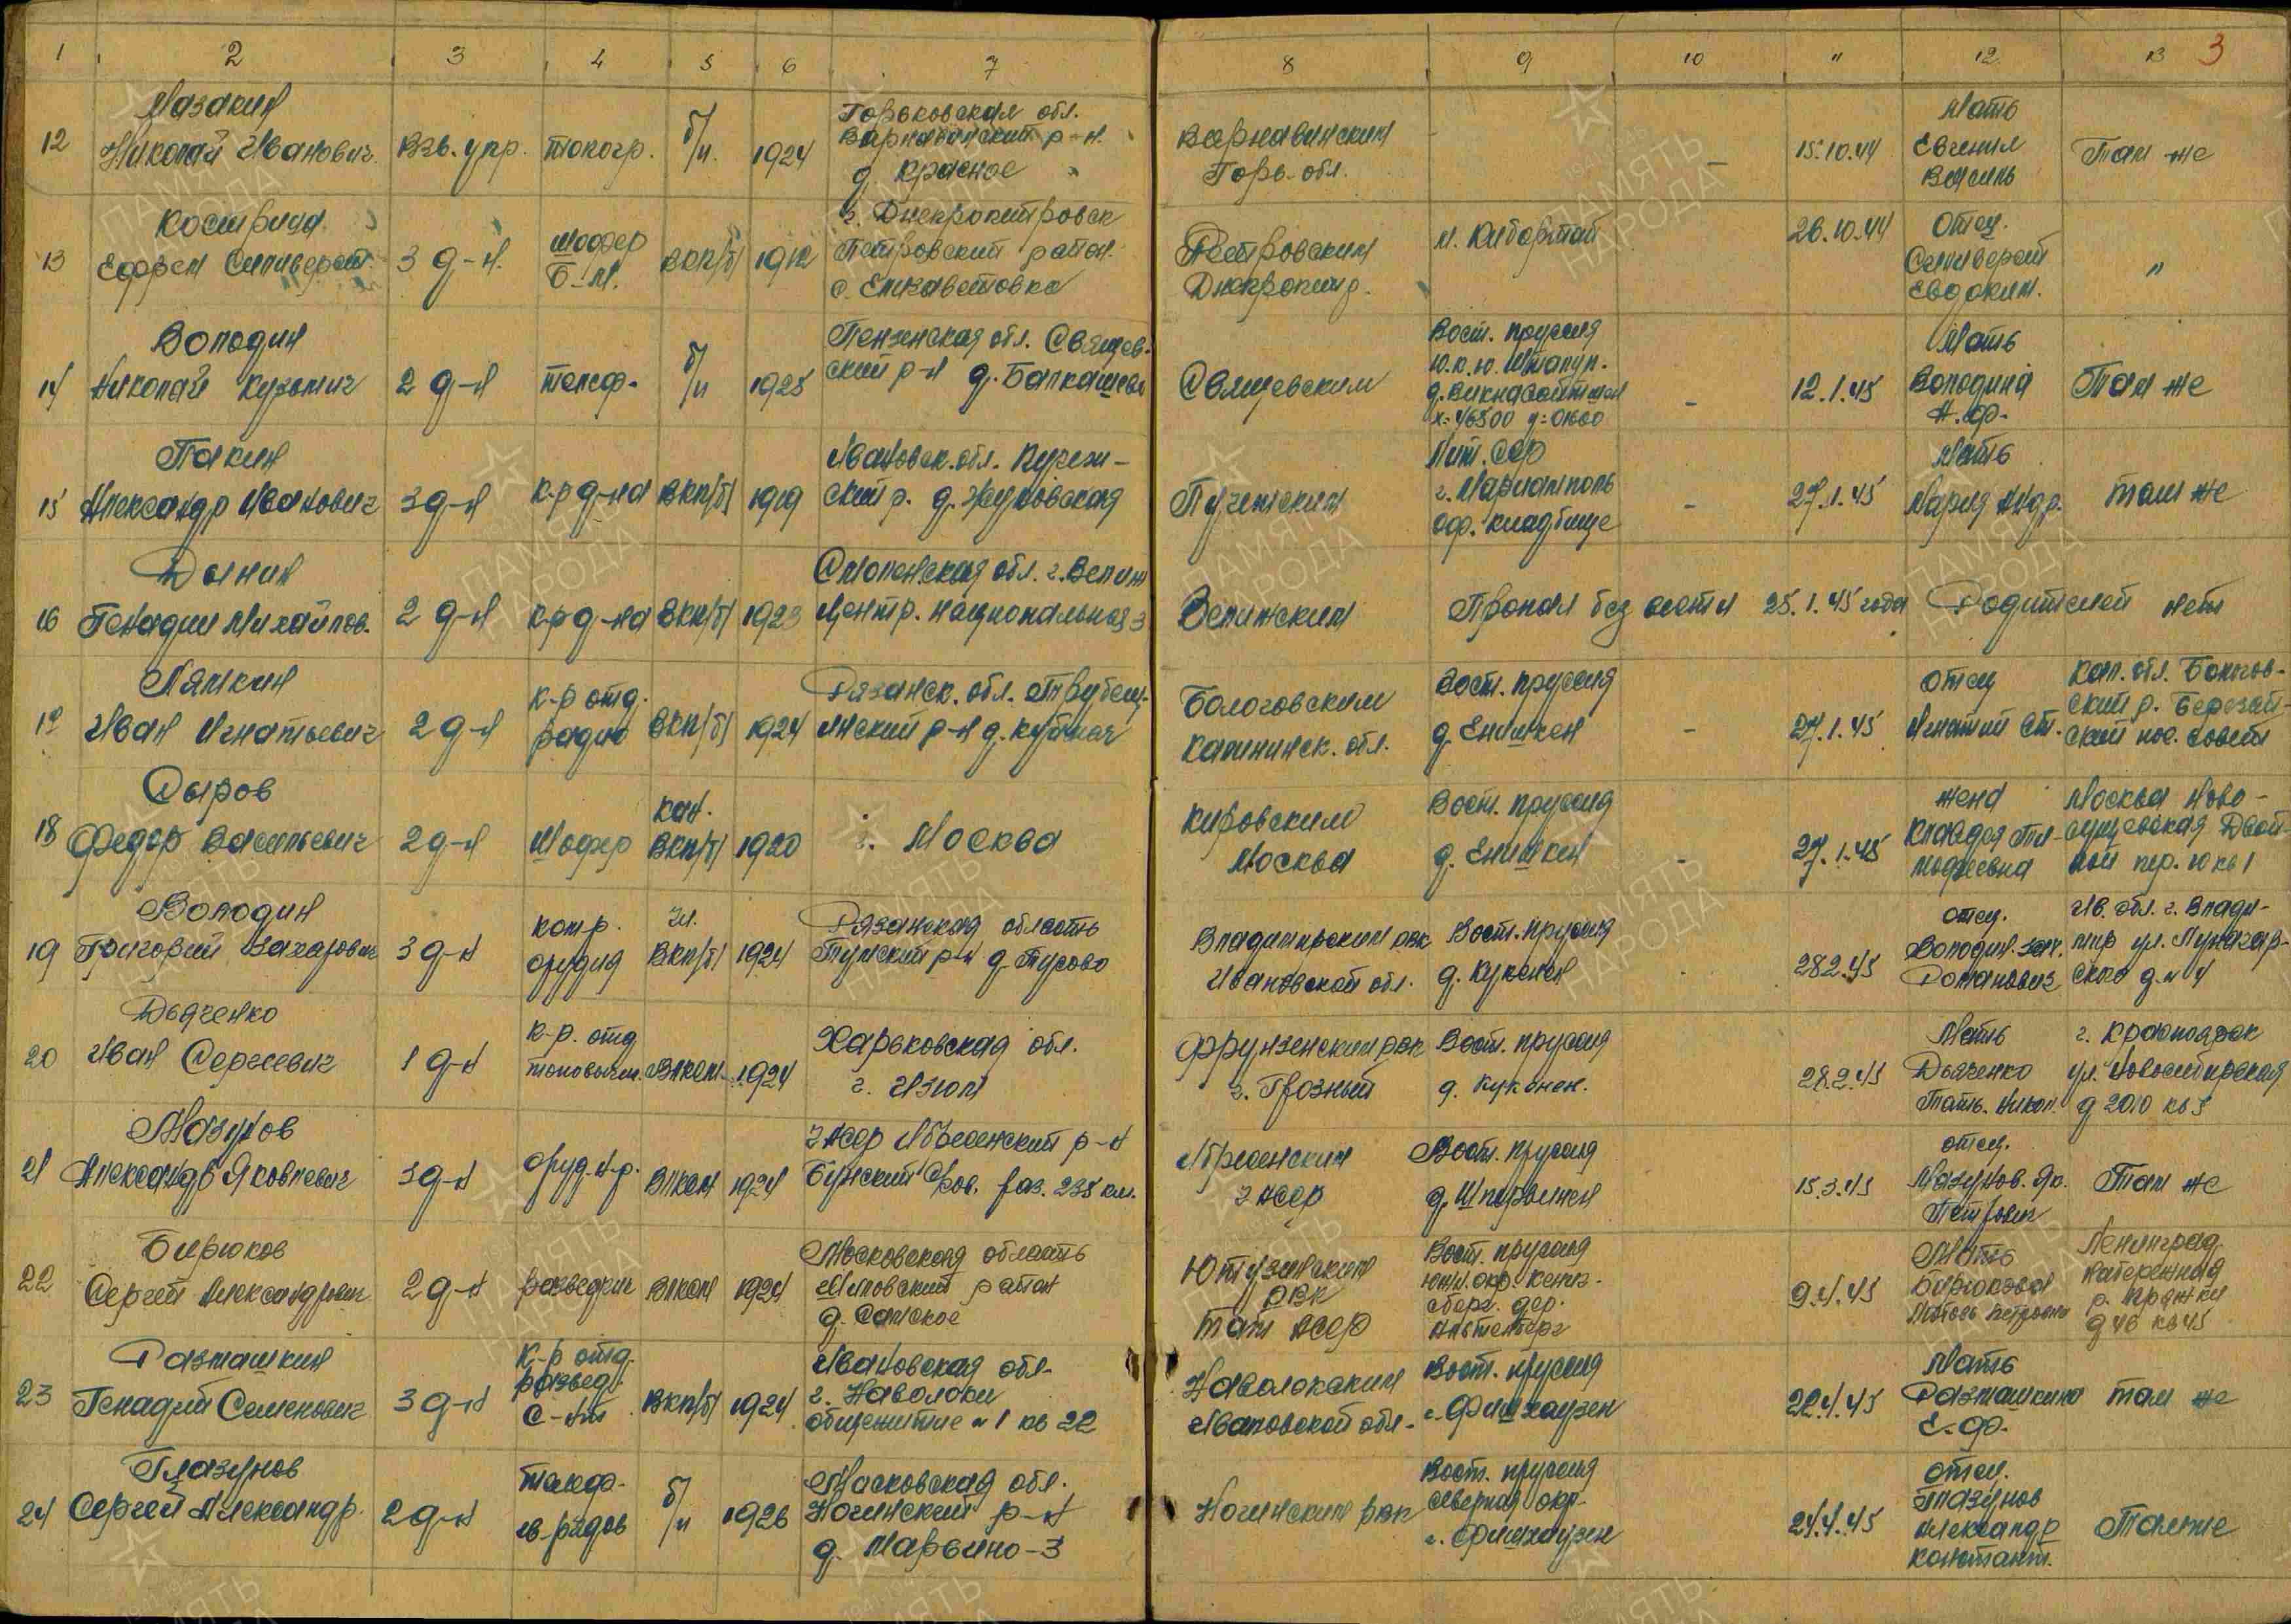 1 2 3 4 5 6 7 8 9 10 11 12 13 3
Мазакин
12 Николай Иванович Взв. упр. топогр. б/п. 1924
Горьковская обл.
Варнавинский р-н.
д. Красное
Варнавинским
Горь. обл.
–
15.10.44
Мать
Евгения
Василь
Там же
Кострица
13 Ефрем Силиверст. 3 д-н. шофер
Б-М.
ВКП/б/ 1912
г. Днепропетровск
Петровский район.
с. Елизаветовка
Петровским
Днепропетр.
м. Кибортай
26.10.44
Отец.
Силиверст
Евдоким.
"
Володин
14 Николай Кузьмич 2 д-н телеф. б/п 1925
Пензенская обл. Свищев-
ский р-н д. Балкашево
Свищевским
Вост. пруссия
ю.п.ю. Шталуп.
х=46500 у=01600
–
12.1.45
Мать
Володина
А.Ф.
Там же
Талин
15 Александр Иванович 3 д-н к-р д-на ВКП/б/ 1919
Ивановск. обл. Пучеж-
ский р. д. Жуковская
Пучежским
Лит. ССР
г. Мариамполь
оф. кладбище
–
27.1.45
Мать
Мария Андр.
там же
Дынин
16 Генадий Михайлов. 2 д-н к-р д-на ВКП/б/ 1923
Смоленская обл. г. Велиж
центр. национальная 3
Велижским
Пропал без вести 25.1.45 года
Родителей нет
Лямкин
Иван Игнатьевич 2 д-н
к-р отд.
радио
ВКП/б/ 1924
Рязанск. обл. Трубещ-
инский р-н д.
Бологовским
Калининск. обл.
Вост. пруссия
д. Енишкен
–
27.1.45
отец
Игнатий Ст.
Кал. обл. Бологов-
ский р. Березай-
ский пос. совет
Сыров
18 Федор Васильевич 2 д-н Шофер
кан.
ВКП/б/ 1920
г. Москва
Кировским
Москва
Вост. пруссия
д. Енишкен
–
27.1.45
жена
Клавдея Ти-
мофеевна
Москва Ново-
сущевская Двой-
ной пер. 10 кв 1
Володин
19 Григорий Захарович 3 д-н
ком-р.
орудия
чл.
ВКП/б/ 1924
Рязанская область
Тумский р-н д. Тусово
Владимирским рвк
Ивановской обл.
Вост. пруссия
д. Кукенен
28.2.45
отец.
Володин. Зах.
Романович
Ив. обл. г. Влади-
мир ул. Луначар-
ского д. н 4
Дьяченко
20 Иван Сергеевич 1 д-н
к-р. отд
топовычис. ВЛКСМ 1924
Харьковская обл.
г. Изюм
Фрунзенским рвк
г. Грозный
Вост. пруссия
д. Кукенен.
28.2.45
Мать
Дьяченко
Татья. Никол.
г. Красноярск
ул. Новосибирская
Мазунов
21 Александр Яковлевич 3 д-н оруд. н-р. ВЛКСМ 1924
УАССР р-н
раз. 235 км.
УАССР
Вост. пруссия
15.3.45
отец.
Мазунов. Як.
Петрович
Там же
Бирюков
22 Сергей Александрович 2 д-н разведчик ВЛКСМ 1924
Московская область
район
д. Самское
Ютузинским
РВК
Тат АССР
Вост. пруссия
южн. окр. Кениг-
сберг. дер.
Альтенберг
9.4.45
Мать
Бирюкова
Любовь Петровна
Ленинград
набережная
р. Пряжки
д 46 кв 45
Размашкин
23 Генадий Семенович 3 д-н
к-р отд.
развед.
с-нт
ВКП/б/ 1924
Ивановская обл-
г. Наволоки
общежитие н 1 кв 22
Наволокским
Ивановской обл-
Вост. пруссия
г. Фишхаузен
22.4.45
Мать
Размашкина
Е. Ф.
там же
Глазунов
24 Сергей Александр. 2 д-н
телеф-
гв-рядов б/п 1926
Масковская обл.
Ногинский р-н
д. Марьино-3
Ногинским рвк
Вост. пруссия
северная окр-
г. Фишхаузен
24.4.45
отец.
Глазунов
Александр
Констант.
Тамже
ПАМЯТЬ
НАРОДА